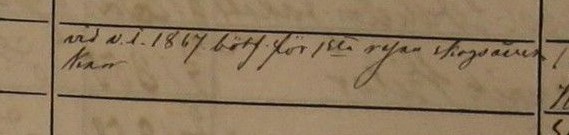 vid v.t. 1867 bötf. för 1sta resan skogsåver-
kan